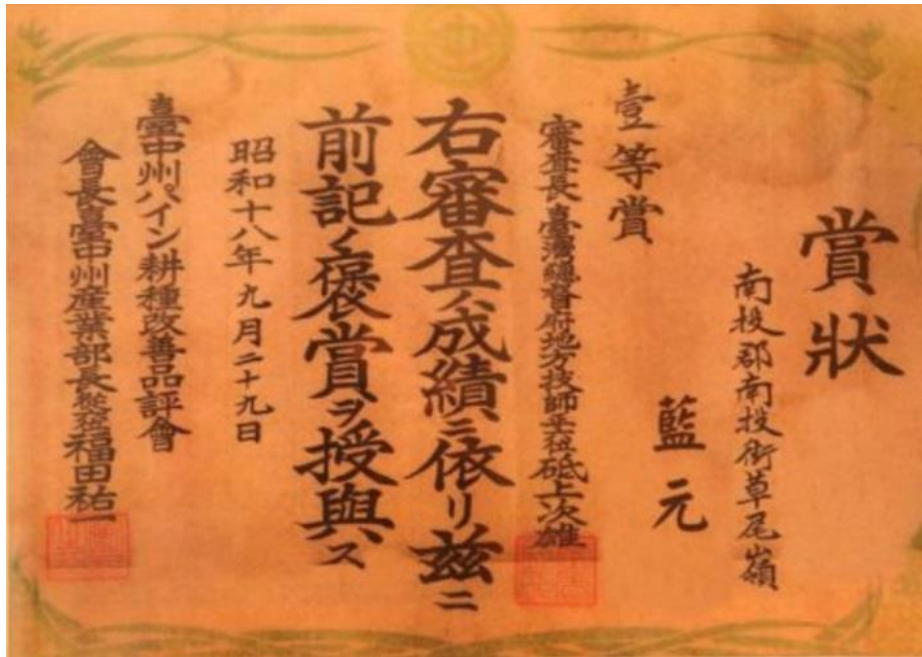 賞狀
南投郡南投街草尾嶺
藍元
壹等賞
審査長臺灣總督府地方技師正七位砥上次雄
右審査ノ成績ニ依リ茲ニ
前記ノ褒賞ヲ授與ス
昭和十八年九月二十九日
臺中州パイン耕種改善品評會
會長臺中州産業部長從六位福田祐一